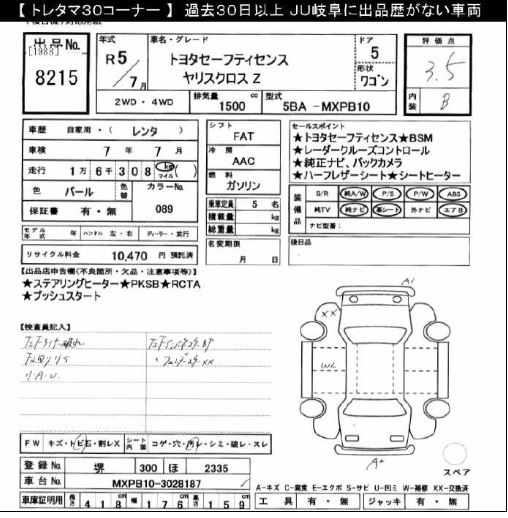 【 トレタマ30コーナー 】 過去30日以上 JU岐阜に出品歴がない車両
出品No.
[1988]
8215
年式
R 5 / 7 月
車名・グレード
トヨタセーフティセンス
ヤリスクロス Z
ドア
5
形状
ワゴン
2WD ・ 4WD
排気量 1500 cc
型式 5BA -MXPB10
評価点
3.5
内装
B
車歴 自家用・( レンタ )
車検 7 年 7 月
走行 1万 6千 308 km マイル
色 パール カラーNo. 089
保証書 有・無
モデル年式 年 ハンドル 左・右 ディーラー・並行
リサイクル料金 10,470 円 預託済
シフト
FAT
冷房
AAC
燃料
ガソリン
乗車定員 5 名
積載量 kg
総重量 kg
名変期限
月 日
セールスポイント
★トヨタセーフティセンス★BSM
★レーダークルーズコントロール
★純正ナビ、バックカメラ
★ハーフレザーシート★シートヒーター
装備品 S/R 純A/W P/S P/W ABS
純TV 純ナビ 革シート 外ナビ エアB
ナビ型番:
後日品
【出品店申告欄(不良箇所・欠品・注意事項等)】
★ステアリングヒーター★PKSB★RCTA
★プッシュスタート
【検査員記入】
A1
XX
WL
A2
スペア
FW キズ・トビ石・割レX シート内装 コゲ・穴・汚レ・シミ・破レ・スレ
登録No. 堺 300 ほ 2335
車台No. MXPB10-3028187
A-キズ C-腐食 E-エクボ S-サビ U-凹ミ W-補修 XX-交換済
車庫証明用 長さ 418 cm 幅 176 cm 高さ 159 cm
工具 有・無 ジャッキ 有・無